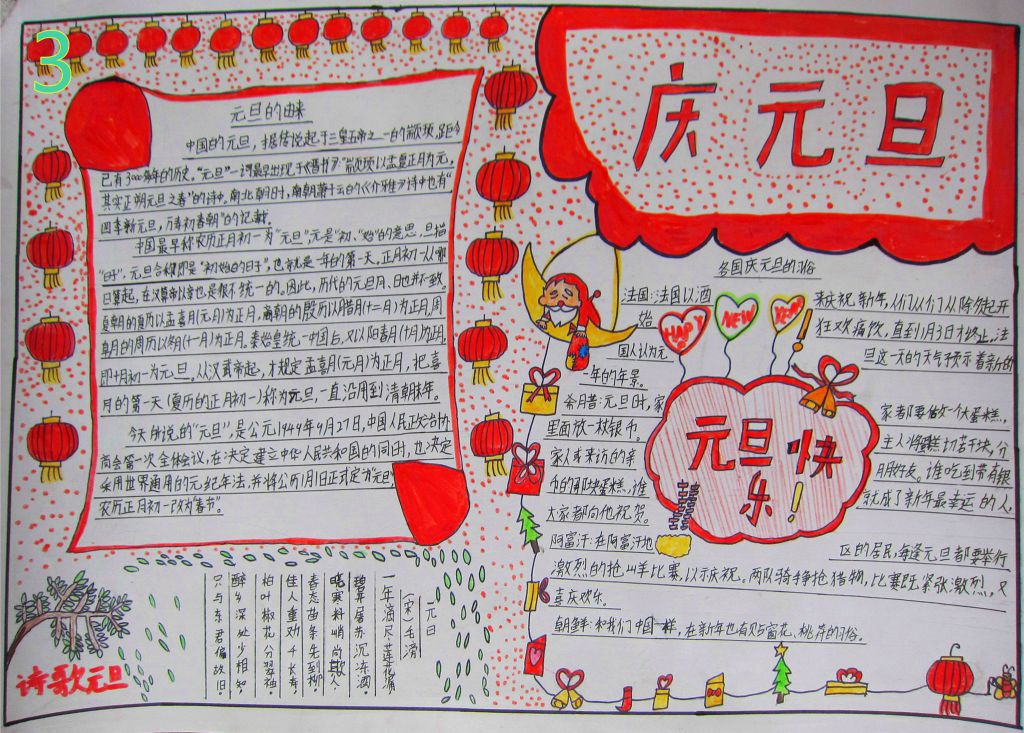 3
庆元旦
元旦的由来
中国的元旦，据传说起于三皇五帝之一的颛顼，距今
已有3000多年的历史。“元旦”一词最早出现于《晋书》：“颛顼以孟夏正月为元，
其实正朔元旦之春”的诗中。南北朝时，南朝萧子云的《介雅》诗中也有“
四季新元旦，万寿初春朝”的记载。
中国最早称农历正月初一为“元旦”，元是“初”、“始”的意思，旦指
“日子”，元旦合称即是“初始的日子”，也就是一年的第一天，正月初一从哪
日算起，在汉武帝以前也是很不统一的。因此，历代的元旦月、日也并不一致。
夏朝的夏历以孟喜月(元月)为正月，商朝的殷历以腊月(十二月)为正月，周
朝的周历以冬月(十一月)为正月。秦始皇统一中国后，又以阳春月(十月)为正月，
即十月初一为元旦。从汉武帝起，才规定孟喜月(元月)为正月，把喜
月的第一天(夏历的正月初一)称为元旦，一直沿用到清朝末年。
今天所说的“元旦”，是公元1949年9月27日，中国人民政治协
商会第一次全体会议，在决定建立中华人民共和国的同时，也决定
采用世界通用的元纪年法，并将公历1月1日正式定为“元旦”，
农历正月初一改为“春节”。
诗歌元旦
元日
(宋)毛滂
一年滴尽莲花漏
碧井屠苏沉冻酒
晓寒料峭尚欺人
春态苗条先到柳
佳人重劝千长寿
柏叶椒花分翠袖
醉乡深处少相知
只与东君偏故旧
各国庆元旦的习俗
HAPPY
NEW
YEAR
元旦快
乐！
法国：法国以酒来庆祝新年，人们从除夕起开
始狂欢痛饮，直到1月3日才终止，法
国人认为元旦这一天的天气预示着新的
一年的年景。
希腊：元旦时，家家都要做一个大蛋糕，
里面放一枚银币。主人将蛋糕切若干块，分
家人或来访的亲朋好友。谁吃到带有银
币的那块蛋糕，谁就成了新年最幸运的人，
大家都向他祝贺。
阿富汗：在阿富汗地区的居民，每逢元旦都要举行
激烈的抢山羊比赛，以示庆祝。两队骑手争抢猎物，比赛既紧张激烈，又
喜庆欢乐。
朝鲜：和我们中国一样，在新年也有贴窗花、桃符的习俗。